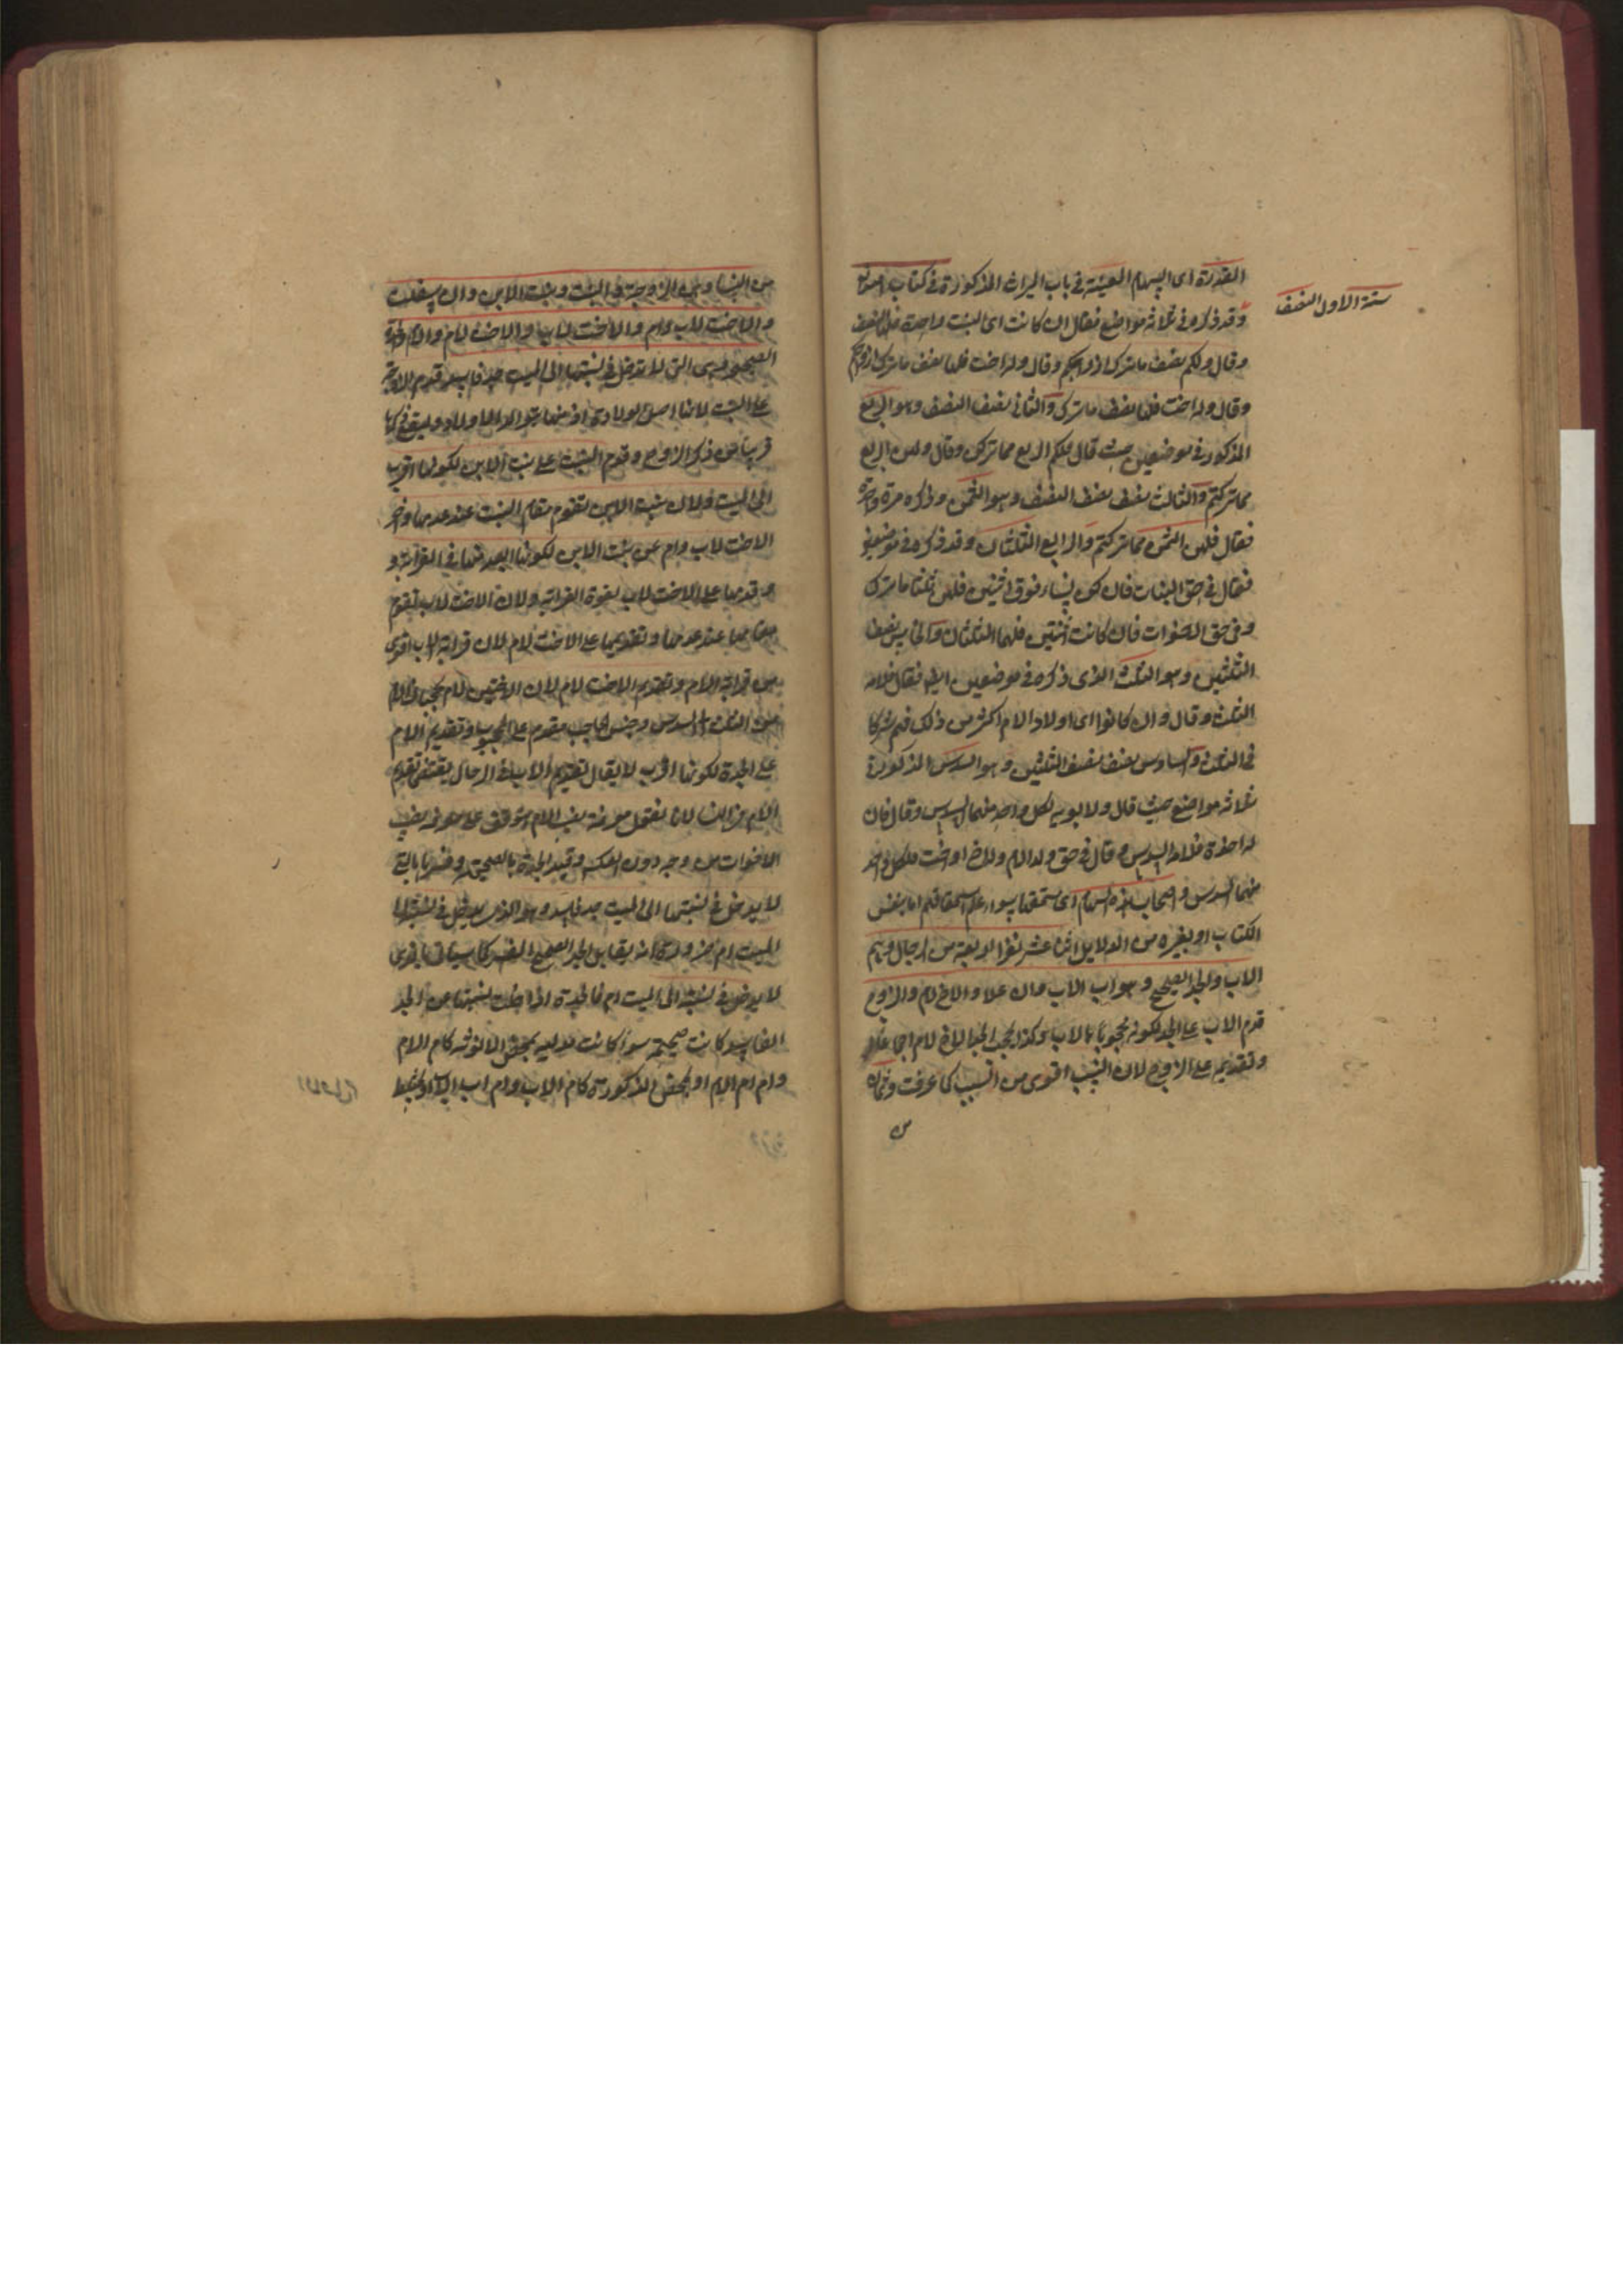 المقدرة اى السهام المعينة فى باب الميراث المذكورة فى كتاب الله تع
ستة الاول النصف
وقد ذكره فى ثلاثة مواضع فقال ان كانت اى البنت واحدة فلها النصف
وقال ولكم نصف ما ترك ازواجكم وقال وله اخت فلها نصف ما ترك
وقال وله اخت فلها نصف ما ترك والثانى نصف النصف وهو الربع
المذكور فى موضعين حيث قال فلكم الربع مما تركن وقال ولهن الربع
مما تركتم والثالث نصف نصف النصف وهو الثمن وذكره مرة واحدة
فقال فلهن الثمن مما تركتم والرابع الثلثان وقد ذكره فى موضعين
فقال فى حق البنات فان كن نساء فوق اثنتين فلهن ثلثا ما ترك
وفى حق الاخوات فان كانت اثنتين فلهما الثلثان والخامس نصف
الثلثين وهو الثلث الذى ذكره فى موضعين ايضا فقال فلامه
الثلث وقال وان كانوا اى اولاد الام اكثر من ذلك فهم شركا
فى الثلث والسادس نصف نصف الثلثين وهو السدس المذكور فى
ثلاثة مواضع حيث قال ولابويه لكل واحد منهما السدس وقال فان
له اخوة فلامه السدس وقال فى حق ولد الام وله اخ او اخت فلكل واحد
منهما السدس واصحاب هذه السهام اى مستحقها سواء علم استحقاقهم اما بنفس
الكتاب او بغيره من الدلايل اثنا عشر نفرا اربعة من الرجال وهم
الاب والجد الصحيح وهو اب الاب وان علا والاخ لام والزوج
قدم الاب على الجد لكونه محجوبا بالاب وكذا يحجب الجد الاخ لام اجماعا
وتقديمه على الزوج لان النسب اقوى من السبب كما عرفت وثمان
من
من النسا وهن الزوجة والبنت وبنت الابن وان سفلت
والاخت لاب وام والاخت لاب والاخت لام والام والجدة
الصحيحة وهى التى لا تدخل فى نسبتها الى الميت جد فاسد قدم الزوجة
على البنت لانها اصل الولادة اذ منها تتولد الاولاد وليقع ذكرها
قريبا من ذكر الزوج وقدم البنت على بنت الابن لكونها اقرب
الى الميت ولان بنت الابن تقوم مقام البنت عند عدمها واخر
الاخت لاب وام عن بنت الابن لكونها ابعد منها فى القرابة و
وقدمها على الاخت لاب لقوة القرابة ولان الاخت لاب تقوم
مقامها عند عدمها وتقديمها على الاخت لام لان قرابة الاب اقوى
من قرابة الام وتقديم الاخت لام لان الاختين لام يحجبان الام
من الثلث الى السدس وجنس الحاجب مقدم على المحجوب وتقديم الام
على الجدة لكونها اقرب لا يقال تقديم الاب فى الرجال يقتضى تقديم
الام فى النسا لانا نقول معرفة نصيب الام يتوقف على معرفة نصيب
الاخوات من وجه دون العكس وقيد الجدة بالصحيحة وفسرها بالتى
لا يدخل فى نسبتها الى الميت جد فاسد وهو الذى يدخل فى نسبته الى
الميت ام ضرورة انه يقابل الجد الصحيح المفسر كما سياتى بالذى
لا يدخل فى نسبته الى الميت ام فالجدة اذا خلت نسبتها عن الجد
الفاسد كانت صحيحة سواء كانت مدلية بمحض الانوثة كام الام
وام ام الام او بمحض الذكورة كام الاب وام اب الاب او بخلط